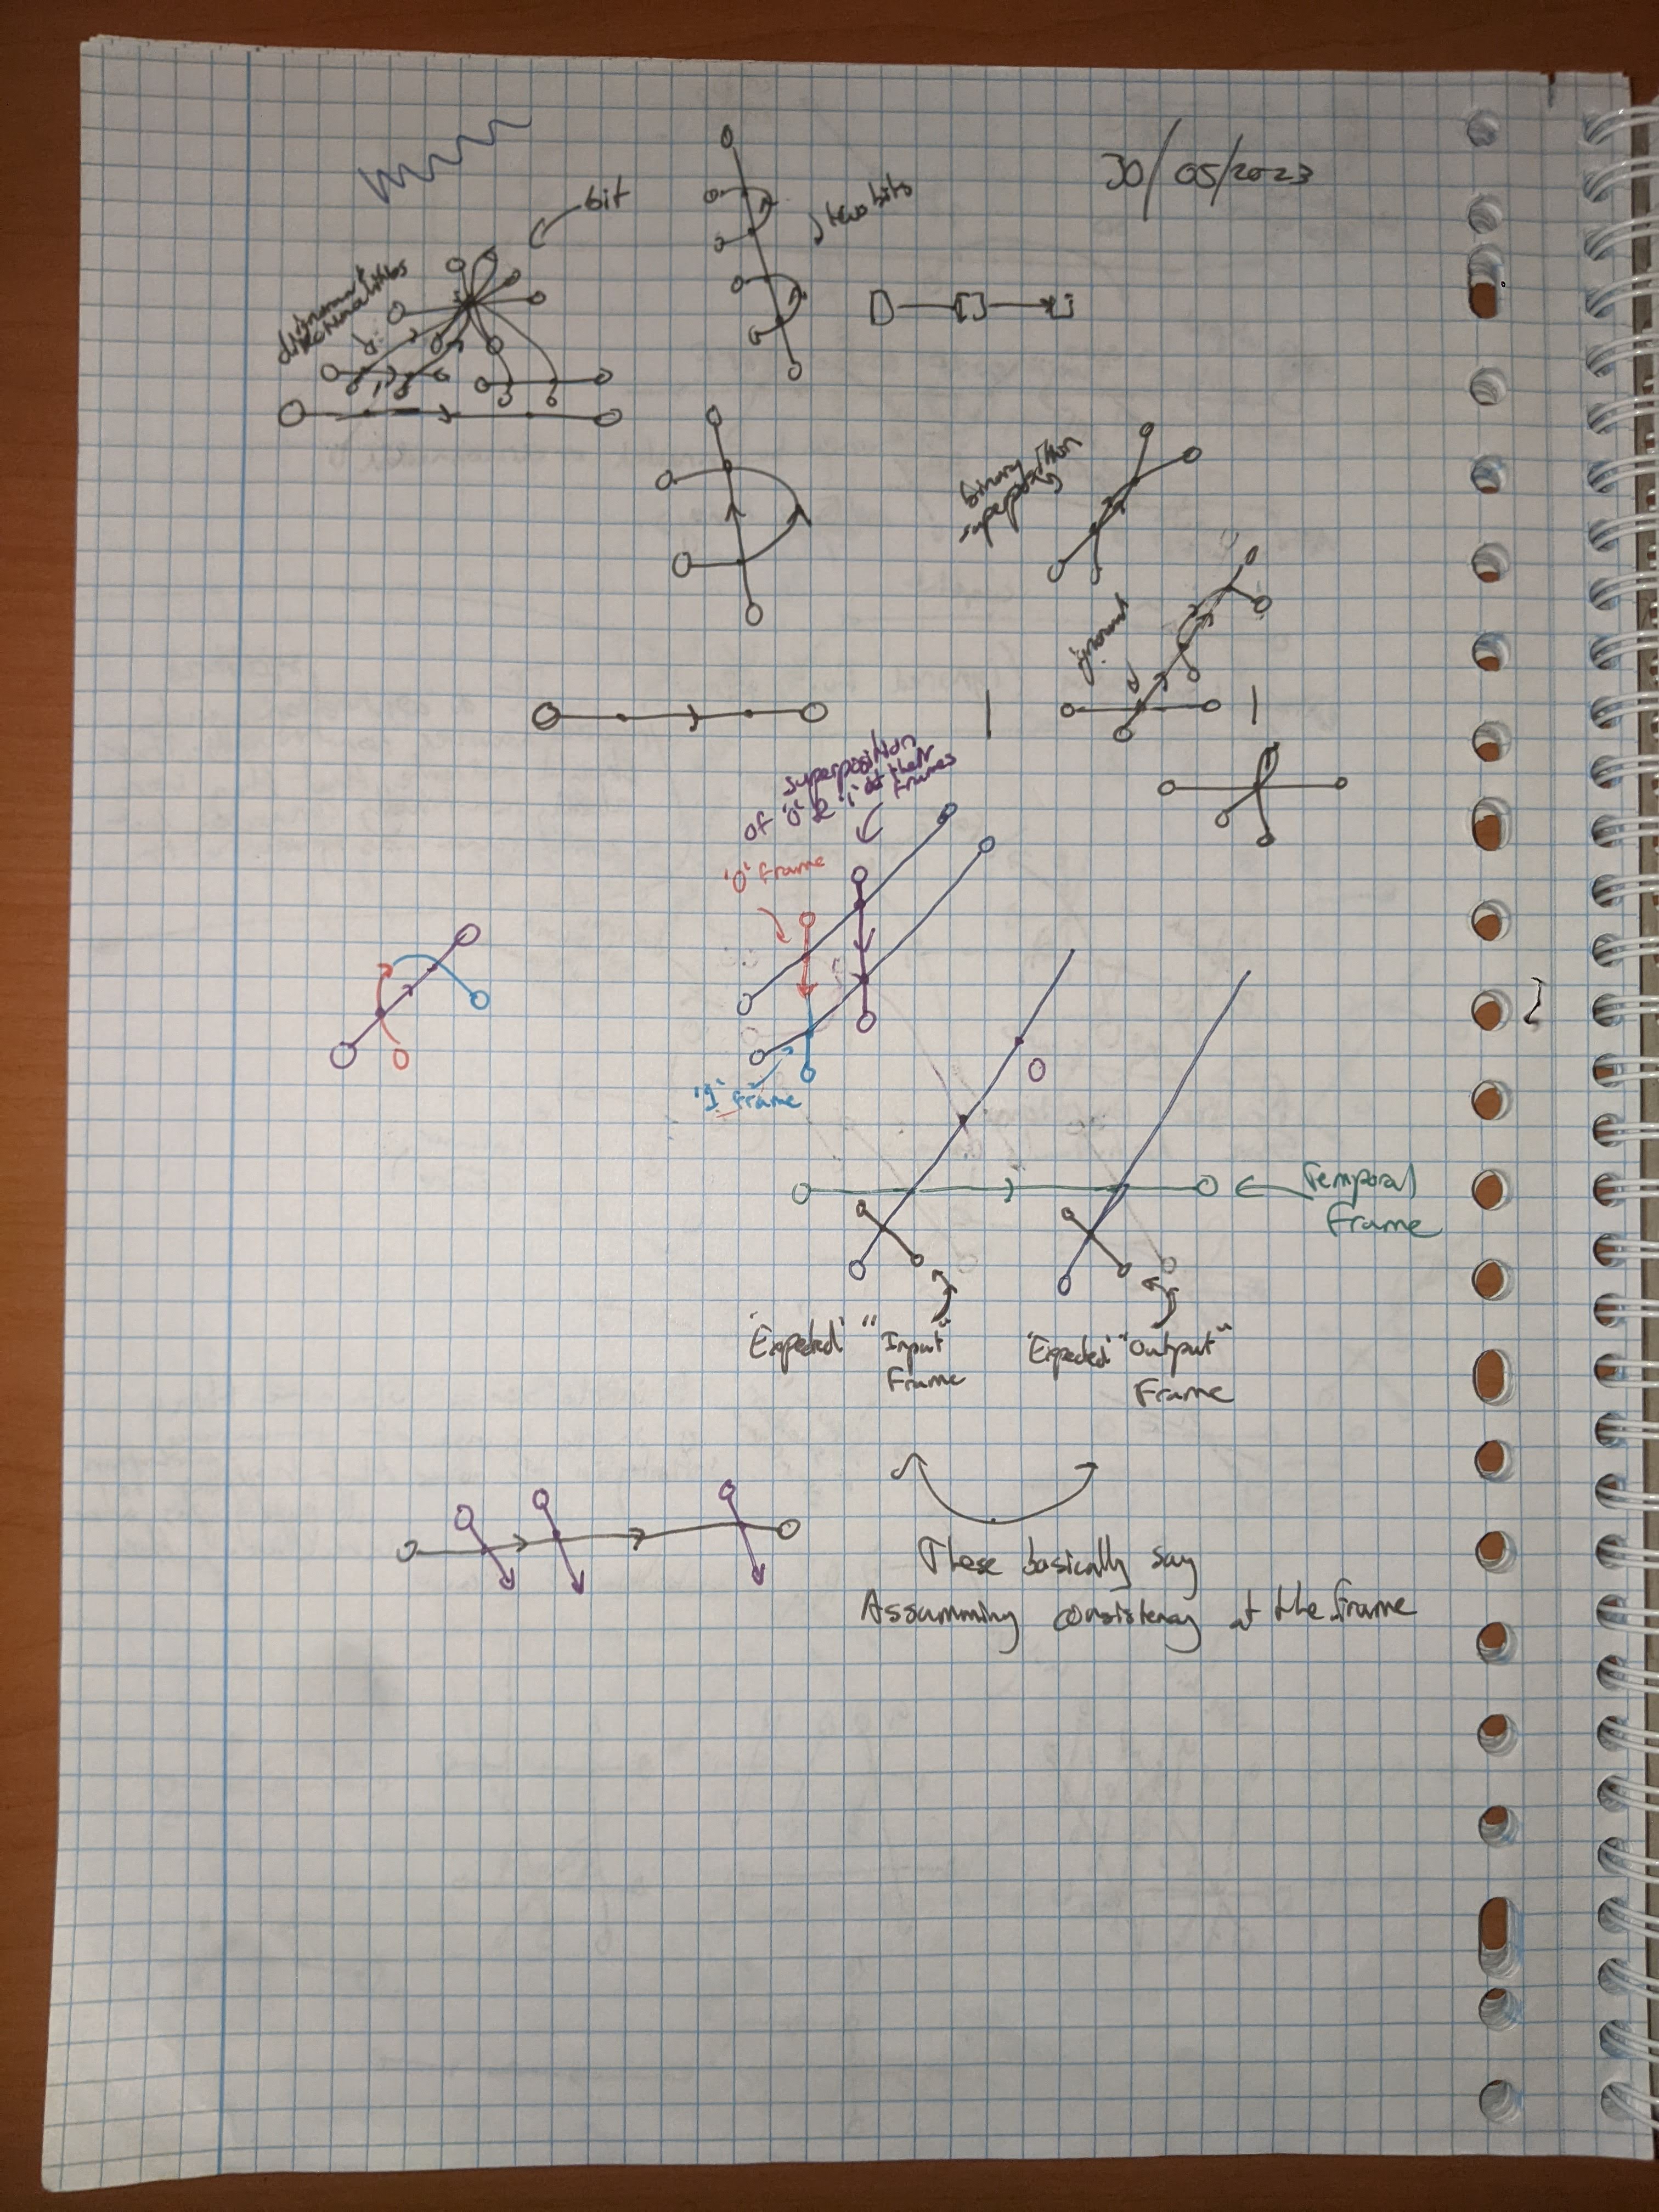 30/05/2023
bit
two bits
ground
dimensionalities
binary
superposition
ground
superposition
of '0' & '1' at their
frames
'0' frame
'1' frame
Temporal
Frame
'Expected' "Input"
Frame
'Expected' "Output"
Frame
These basically say
Assumming consistency at the frame